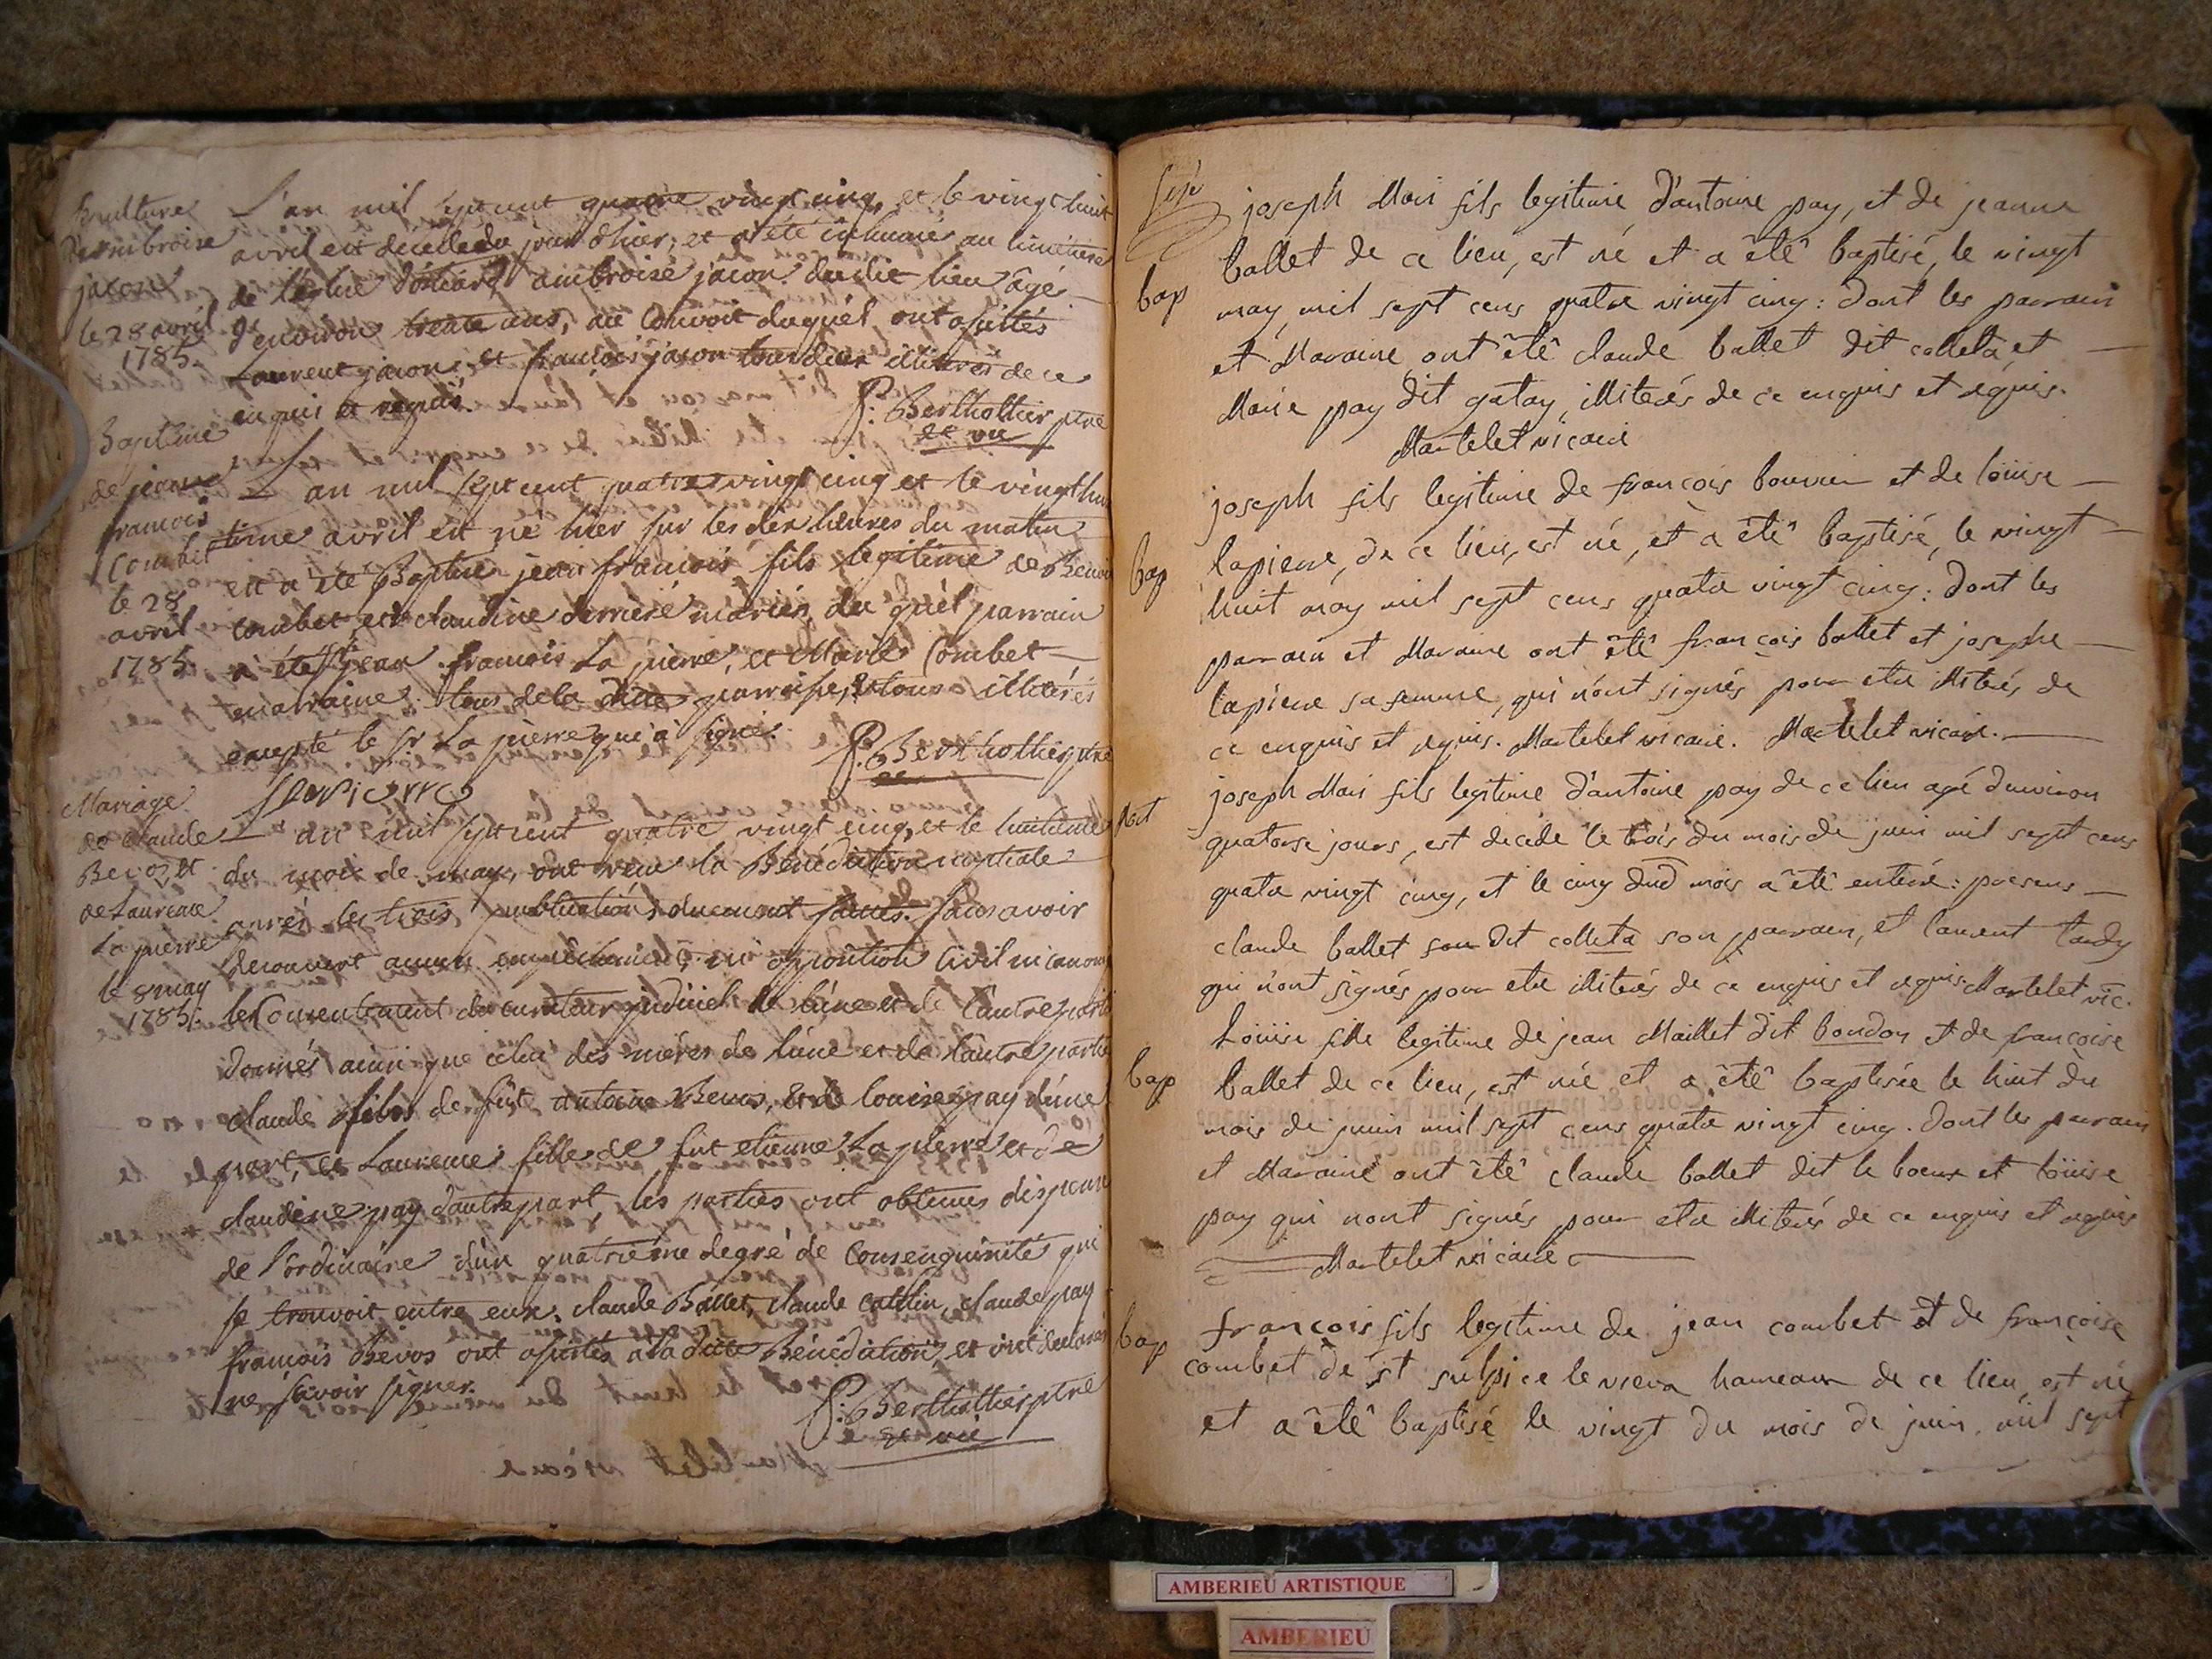 Sepulture
d'ambroise
jacon
le 28 avril
1785.
L'an mil sept cent quatre vingt cinq, et le vingt huit
avril est décédé du jour d'hier, et a été inhumé au cimetière
de l'église ambroise jacon dudit lieu âgé
d'environ trente ans, au convoit duquel ont assistés
Laurent jacon et francois jacon illiterés de ce
enquis et requis.
P. Berthollier ptre
et vic
Baptême
de jean
francois
Combet
le 28
avril
1785
L'an mil sept cent quatre vingt cinq et le vingt hui
tieme avril est né hier sur les dix heures du matin
et a été Baptisé jean francois fils legitime de Benoit
combet, et claudine mariés, du quel parrain
a été Sr jean francois La pierre, et Marie Combet
maraine tous de la dite parroisse, & tous illiterés
excepté le sr La pierre qui a signé.
P. Berthollier ptre
Lapierre
Mariage
de claude
Bevos et
de Laurence
La pierre
le 8 may
1785.
L'an mil sept cent quatre vingt cinq, et le huitieme
du mois de may, ont reçue la Bénédiction nuptiale
après les trois publications duement faites. sans avoir
decouvert aucun empêchement, ni opposition Civil ni canonique
le Consentement du curateur judiciel de l'une et de l'autre partie
donnés ainsi que celui des mères de l'une et de l'autre partie
claude fils de fut antoine Bevos, et de louise pay d'une
part, et Laurence fille de fut etienne La pierre et de
claudine pay d'autre part, les parties ont obtenues dispense
de l'ordinaire d'un quatrième degré de Consenguinité qui
se trouvoit entre eux. claude Ballet, claude cattin, claude pay
francois Bevos ont assistés a la dite Bénédiction, et ont déclarés
ne scavoir signer.
P. Berthollier ptre
et vic
bap
joseph Mari fils legitime d'antoine pay, et de jeanne
ballet de ce lieu, est né et a êtê baptisé, le vingt
may mil sept cens quatre vingt cinq: dont les parrain
et Maraine ont êtê claude ballet dit colleta et
Marie pay dit gatay, illiterés de ce enquis et requis.
Martelet vicaire
bap
joseph fils legitime de françois bouvier et de loüise
lapierre, de ce lieu, est né, et a êtê baptisé, le vingt
huit may mil sept cens quatre vingt cinq: dont les
parrain et Maraine ont êtê françois ballet et josephe
lapierre sa femme, qui n'ont signés pour etre illiterés de
ce enquis et requis. Martelet vicaire. Martelet vicaire.
Mort
joseph Mari fils legitime d'antoine pay de ce lieu agé d'environ
quatorse jours, est decédé le trois du mois de juin mil sept cens
quatre vingt cinq, et le cinq dud mois a êtê enterré: presens
claude ballet son dit colleta son parrain, et laurent tardy
qui n'ont signés pour etre illiterés de ce enquis et requis Martelet vic.
bap
Loüise fille legitime de jean Maillet dit boudon et de françoise
ballet de ce lieu, est née et a êtê baptisée le huit du
mois de juin mil sept cens quatre vingt cinq. dont les parrain
et Maraine ont êtê claude ballet dit le boeux et loüise
pay qui n'ont signés pour etre illiterés de ce enquis et requis
Martelet vicaire
bap
françois fils legitime de jean combet et de françoise
combet de st sulpice le vieux hameaux de ce lieu, est né
et a êtê baptisé le vingt du mois de juin mil sept
AMBERIEU ARTISTIQUE
AMBERIEU